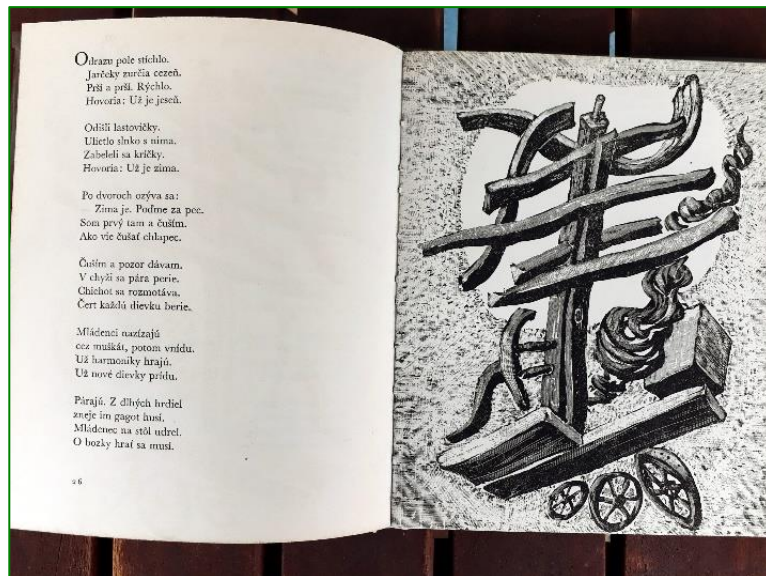 Odrazu pole stíchlo.
Jarčeky zurčia cezeň.
Prší a prší. Rýchlo.
Hovoria: Už je jeseň.
Odišli lastovičky.
Ulietlo slnko s nima.
Zabeleli sa kríčky.
Hovoria: Už je zima.
Po dvoroch ozýva sa:
— Zima je. Poďme za pec.
Som prvý tam a čuším.
Ako vie čušať chlapec.
Čuším a pozor dávam.
V chyži sa pára perie.
Chichot sa rozmotáva.
Čert každú dievku berie.
Mládenci nazízajú
cez muškát, potom vnídu.
Už harmoniky hrajú.
Už nové dievky prídu.
Párajú. Z dlhých hrdiel
zneje im gagot husí.
Mládenec na stôl udrel.
O bozky hrať sa musí.
26